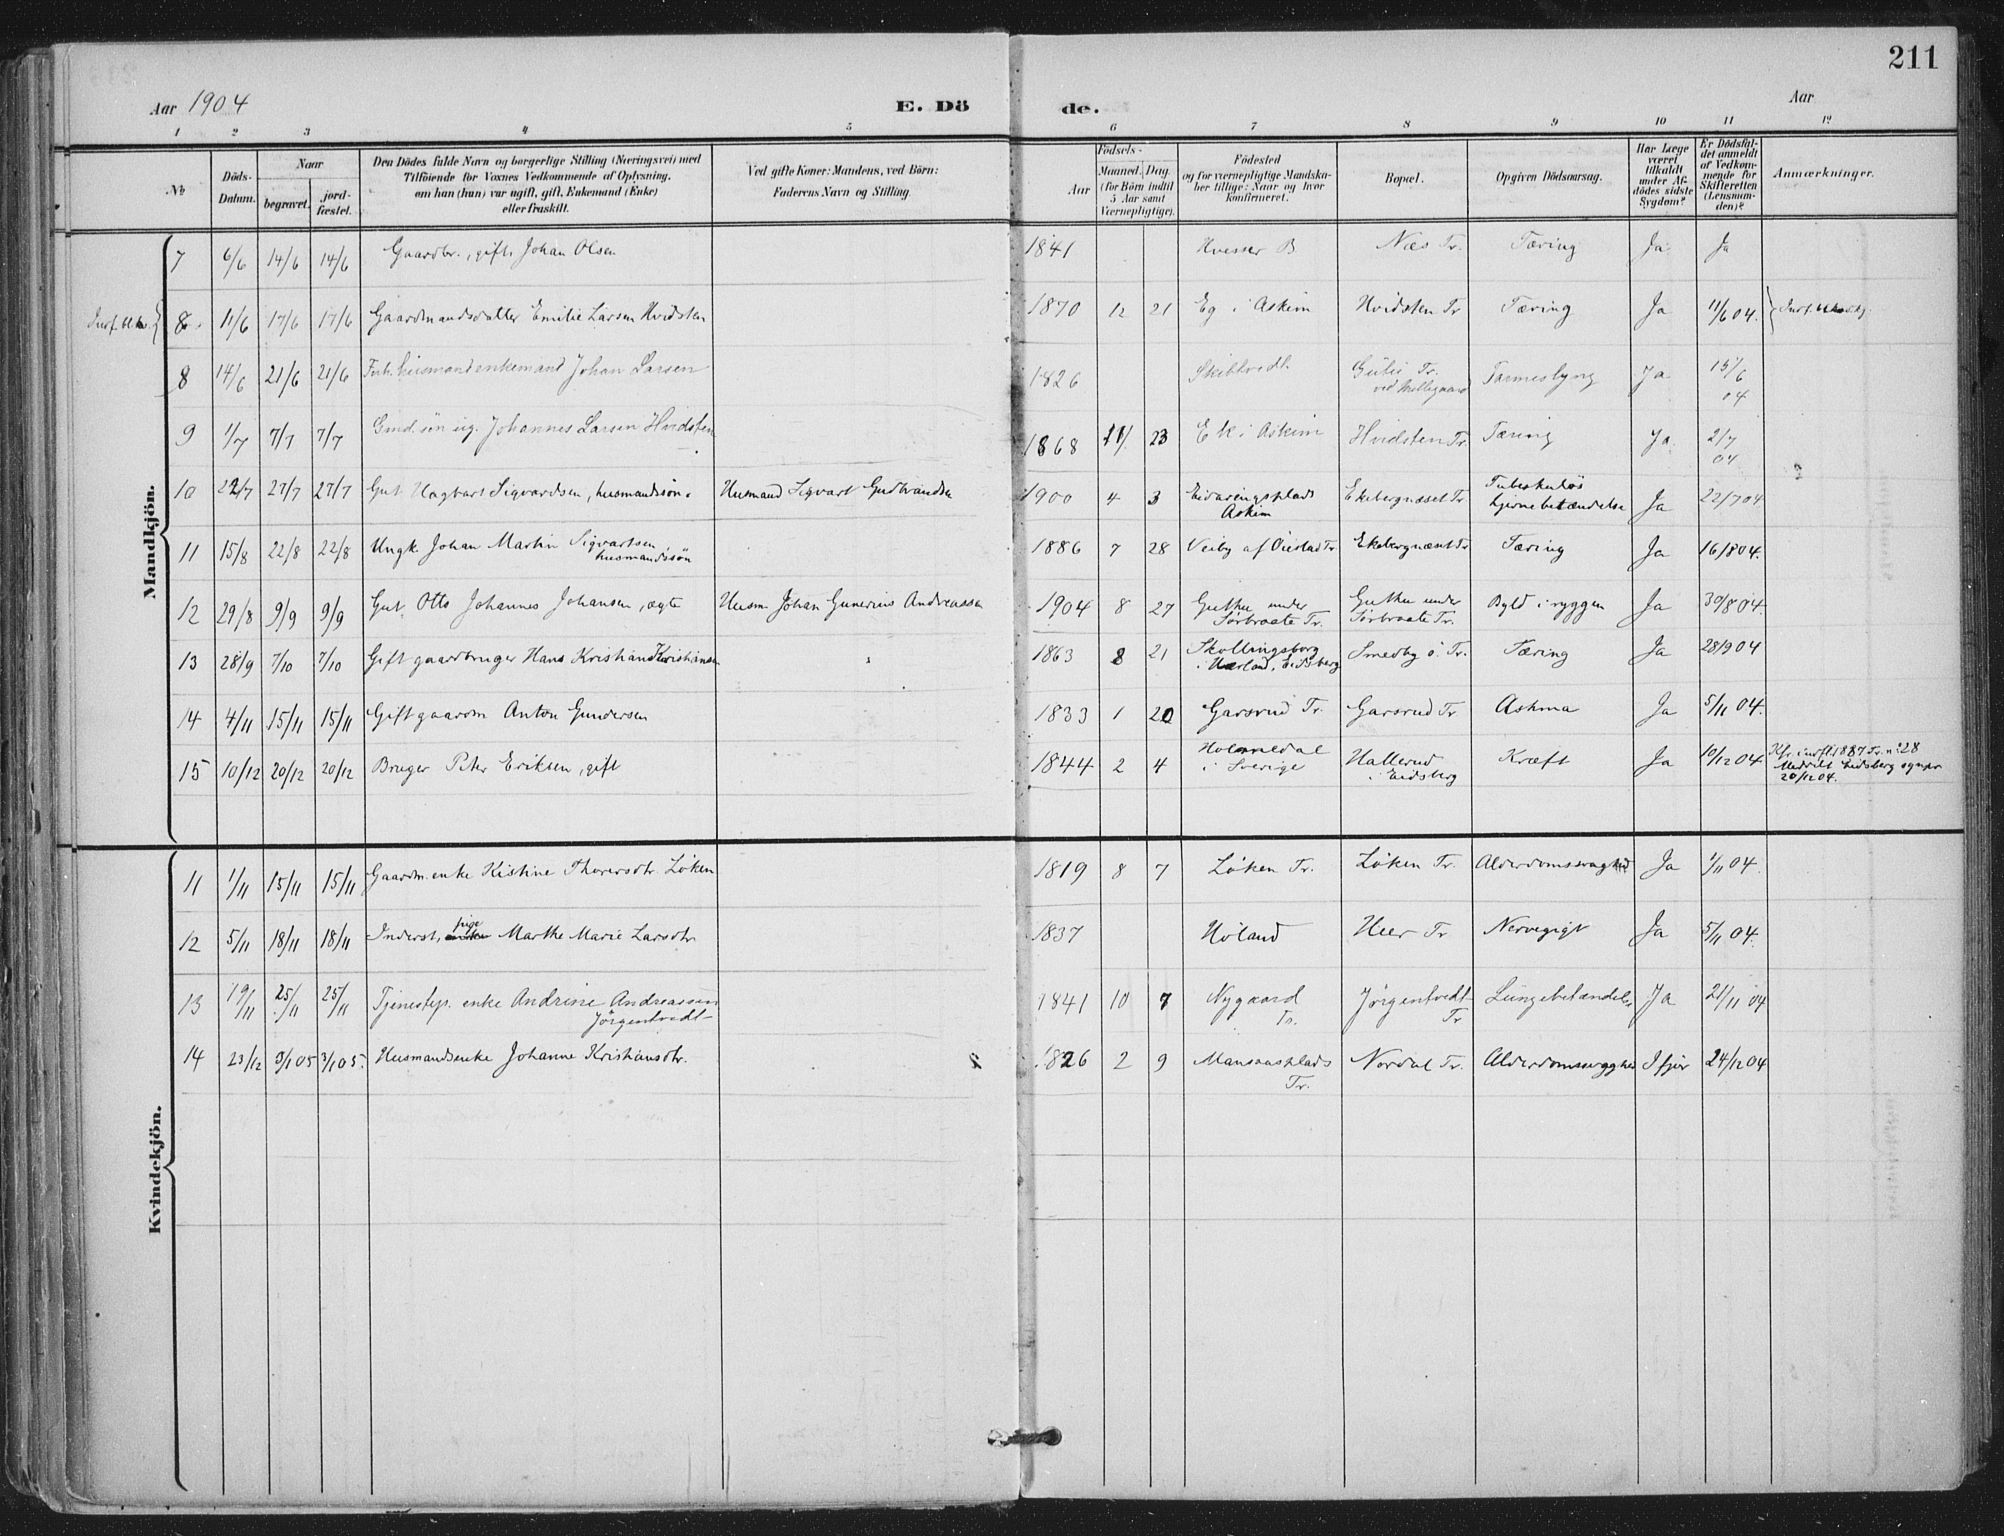 211
Aar 1904 E. Dö de. Aar
1 2 3 4 5 6 7 8 9 10 11 12
No
Döds-Datum.
Naar
begravet.
jord-fæstet.
Den Dödes fulde Navn og borgerlige Stilling (Næringsvei) med
Tilföiende for Voxnes Vedkommende af Oplysning,
om han (hun) var ugift, gift, Enkemand (Enke)
eller fraskilt.
Ved gifte Koner: Mandens, ved Börn:
Faderens Navn og Stilling.
Födsels-
Aar
Maaned. Dag.
(for Börn indtil
5 Aar samt
Værnepligtige).
Födested
og for værnepligtige Mandska-
ber tillige: Naar og hvor
konfirmeret.
Bopæl.
Opgiven Dödsaarsag.
Har Læge
været
tilkaldt
under Af-
dödes sidste
Sygdom?
Er Dödsfal-
det anmeldt
af Vedkom-
mende for
Skifteretten
(Lensman-
den)?
Anmærkninger.
Mandkjön.
7 6/6 14/6 14/6 Gaardbr., gift, Johan Olsen 1841 Næs Tr. Tæring Ja Ja
8 11/6 17/6 17/6 Gaardmandsdatter Emilie Larsen Hvidsten 1870 12 21 Eg i Askim Hvidsten Tr Tæring Ja 11/6 04.
8 14/6 21/6 21/6 husmand enkemand Johan Larsen 1826 Skibtvedt. Tr. Tarmeslyng Ja 15/6 04
9 1/7 7/7 7/7 Gmd.sön ug. Johannes Larsen Hvidsten 1868 11 23 Ek i Askim Hvidsten Tr. Tæring Ja 2/7 04
10 22/7 27/7 27/7 Gut Hagbart Sigvardsen, husmandssön. Husmand Sigvart Gudbrandsen 1900 4 3 Askim Ekebergnæset Tr. Tuberkulös
hjernebetændelse Ja 22/7 04
11 15/8 22/8 22/8 Ungk. Johan Martin Sigvartsen
husmandssön 1886 7 28 Ekebergnæset Tr Tæring Ja 16/8 04.
12 29/8 9/9 9/9 Gut Otto Johannes Johansen, ægte Husm. Johan Gunerius Andreassen 1904 8 27 Guthu under
Sörbraate Tr. Guthu under
Sörbraate Tr. Byld i ryggen Ja 30/8 04.
13 28/9 7/10 7/10 Gift gaardbruger Hans Kristian Kristiansen 1863 8 21 Skollingsborg
i Hærland, Eidsberg Smedby ö. Tr. Tæring Ja 28/9 04
14 4/11 15/11 15/11 Gift gaardm Anton Gundersen 1833 1 20 Garsrud Tr. Garsrud Tr Asthma Ja 5/11 04.
15 10/12 20/12 20/12 Bruger Peter Eriksen, gift 1844 2 4 Holmedal
i Sverige Hallerud
i Eidsberg Kræft Ja 10/12 04 1887 Tr. n: 28
Meddelt Eidsberg
20/12 04.
Kvindekjön.
11 1/11 15/11 15/11 Gaardm.enke Kistine Thoresdtr. Löken 1819 8 7 Löken Tr. Löken Tr. Alderdomssvaghed Ja 1/11 04.
12 5/11 18/11 18/11 Inderst, pige Marthe Marie Larsdtr. 1837 Höland Heer Tr Nervegigt Ja 5/11 04.
13 19/11 25/11 25/11 Tjenestep. enke Andrine Andreassen
Jörgentvedt 1841 10 7 Nygaard
Tr. Jörgentvedt
Tr Lungebetændelse Ja 21/11 04
14 23/12 3/1 05 3/1 05. Husmandsenke Johanne Kristiansdtr. 1826 2 9 Mansaasplads
Tr. Nordal Tr. Alderdomssvaghed I fjor 24/12 04